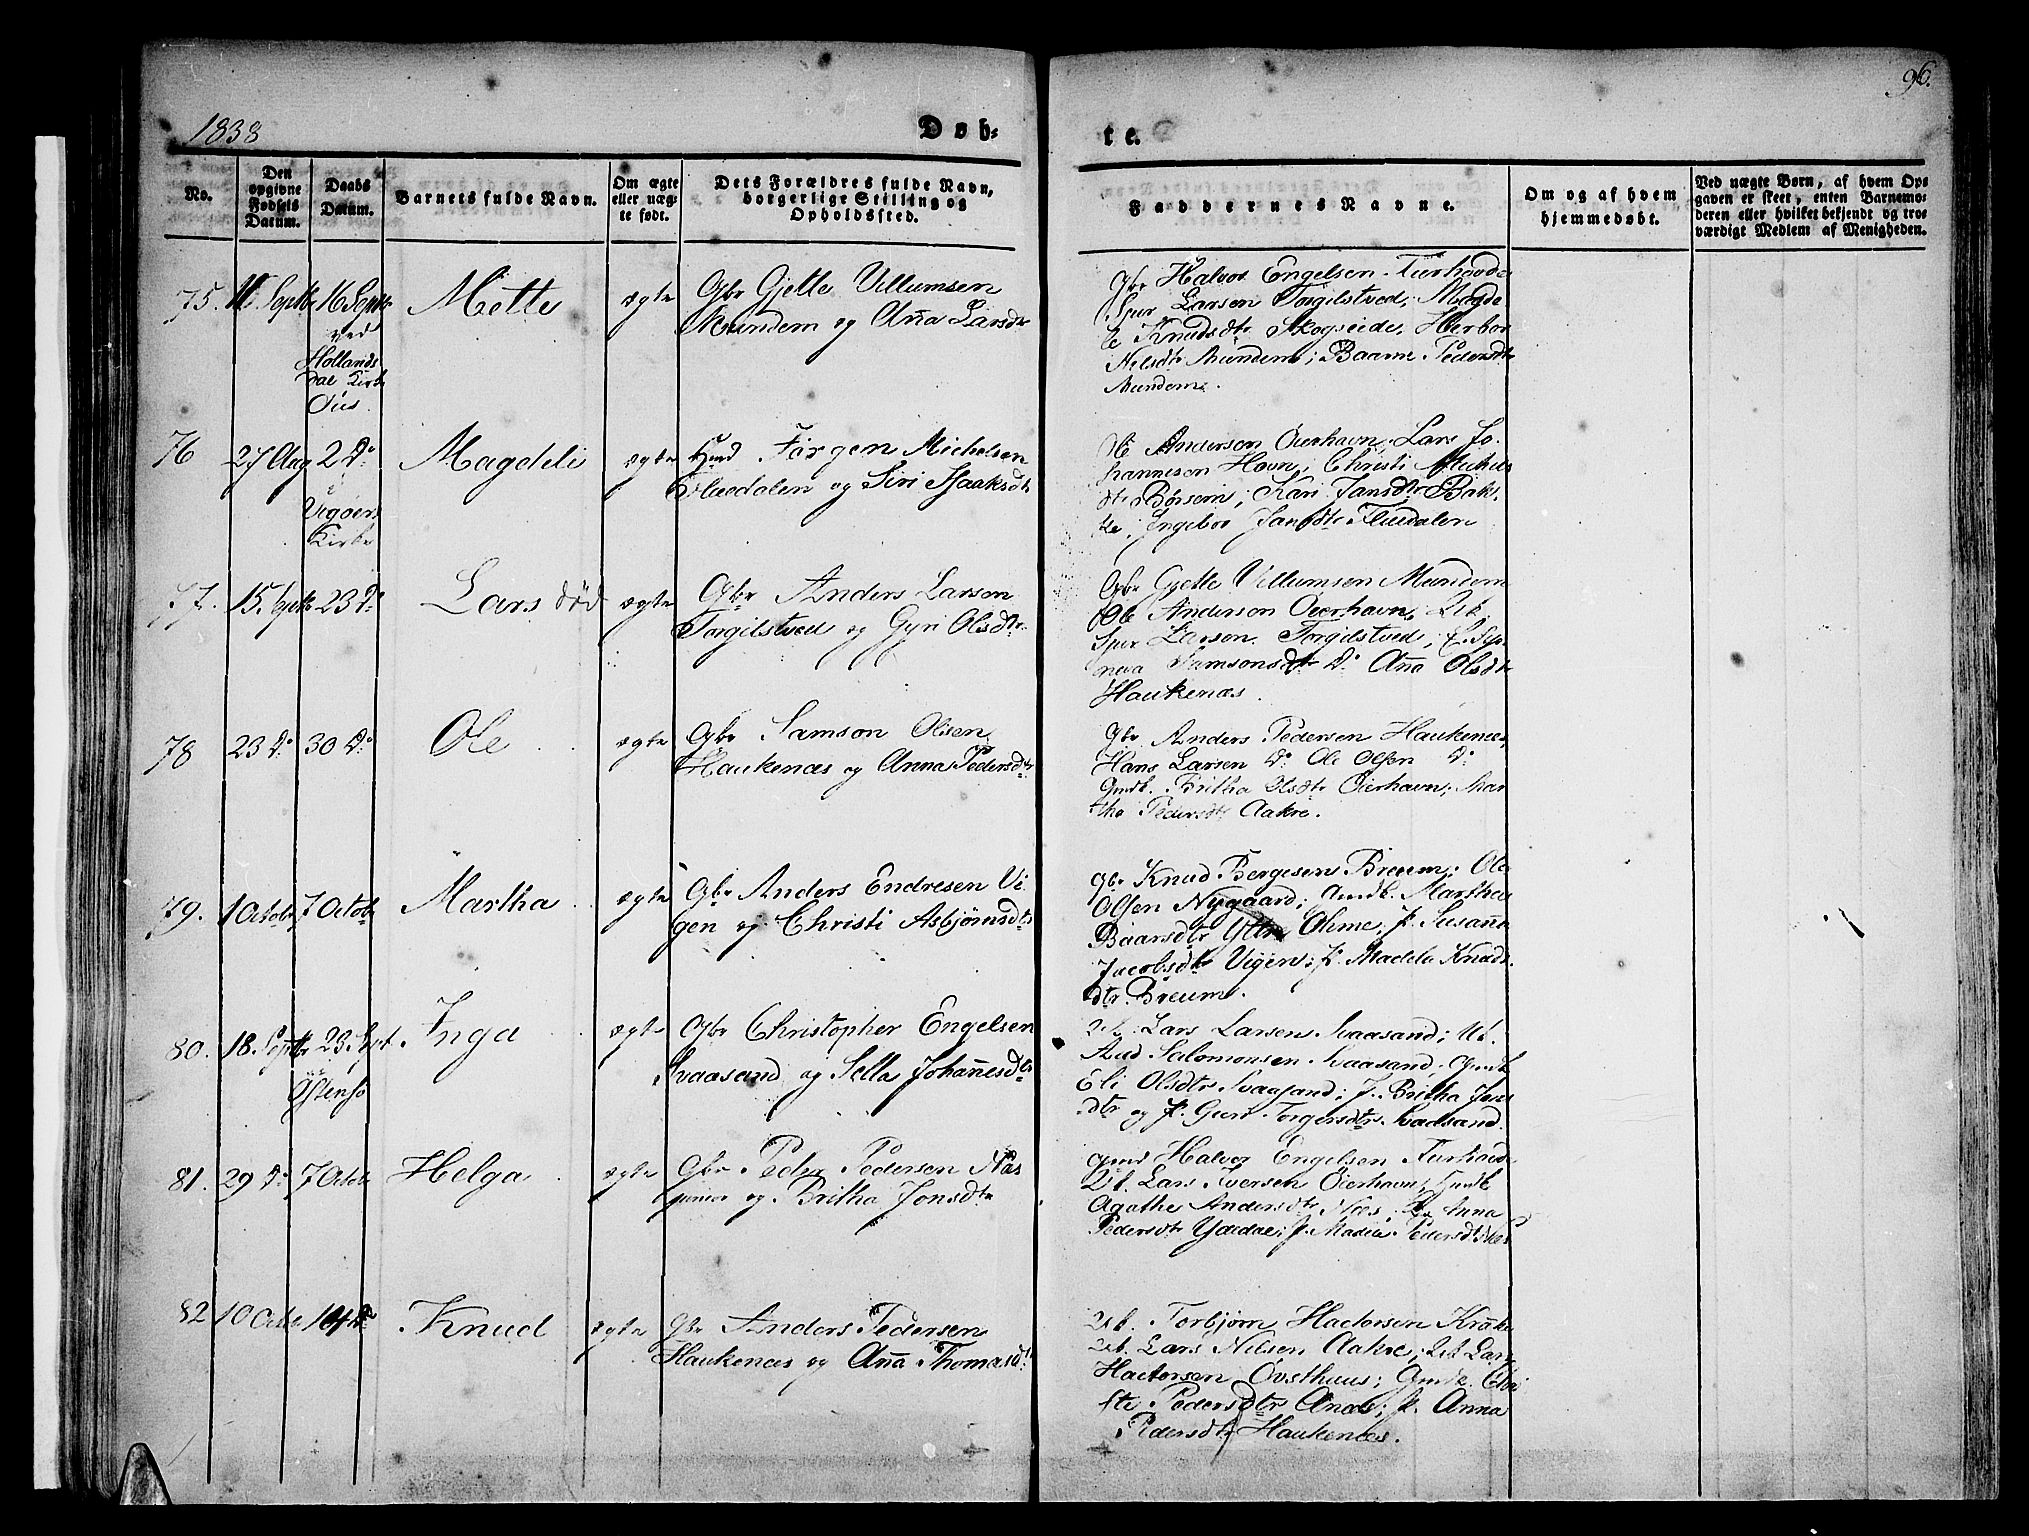 96.
1838
Døb-
te.
No.
Den
opgivne
Fødsels
Datum.
Daabs
Datum.
Barnets fulde Navn.
Om ægte
eller uæg-
te født.
Dets Forældres fulde Navn,
borgerlige Stilling og
Opholdssted.
Faddernes Navne.
Om og af hvem
hjemmedøbt.
Ved uægte Børn, af hvem Op-
gaven er skeet, enten Barnemo-
deren eller hvilket bekjendt og tro-
værdigt Medlem af Menigheden.
75.
Septbr
16 Septbr
ved
Hollands
dal Kirke
Mette
ægte
Gbr Gjette Villumsen
Mundem og Aña Larsdtr
Gbr Halvor Engelsen
Sjur Larsen Torgilstved, Magde
Knudsdtr Skogseide, Herbor
Nilsdtr Mundem; Baarni Pedersdtr
Mundem.
76
27 Aug
2 Do
i
Vigøers
Kirke
Magdeli
ægte
Hmd Jørgen Michelsen
og Siri Isaaksdtr
Ole Anderson Oierhavn, Lars Jo-
hannesen Havn; Christi Michels
dtr Børsem; Kari Jansdtr Bak-
ke, Ingebor Jansdtr
77.
15. Septbr
23 Do
Lars død
ægte
Gbr Anders Larsen
Torgilstved og Gyri Olsdtr
Gbr Gjette Villumsen Mundem
Ole Anderson Oierhavn, Uk.
Sjur Larson Torgilstved,
Samsonsdtr Do Aña Olsdtr
Haukenæs.
78
23 Do
30 Do
Ole
ægte
Gbr Samson Olsen
Haukenæs og Anna Pedersdtr
Gbr Anders Pedersen Haukenæs,
Hans Larsen Do Ole Olsen Do
Gmdk. Britha Olsdtr Oierhavn; Mar
tha Pedersdtr Aakre.
79.
1 Octobr
7 Octobr
Martha
ægte
Gbr Anders Endresen Vi-
gen og Christi Asbjørnsdtr
Gbr Knud Børgesen Breum; Ole
Olsen Nygaard; Gmdk. Martha
Baarsdtr Ytre Ohme; p. Susaña
Jacobsdtr Vigen; p. Madele Knuds-
dtr. Breum.
80.
18. Septbr
23 Sept
Østensø
Inga
ægte
Gbr Christopher Engelsen
Svaasand og Sella Johañesdtr
Uk. Lars Larsen Svaasand; Uk.
Aud Salomonsen Svaasand; Gmdk
Eli Olsdtr Svaasand; p. Britha Jons
dtr og p. Guri Torgersdtr Svaasand.
81.
29 Do
7 Octobr
Helga
ægte
Gbr Peder Pedersen Næs
junior og Britha Jonsdtr
Gmd Halvor Engelsen
Uk. Lars Iversen Oierhavn; Gmdk
Agathe Andersdtr Næs; p. Anna
Pedersdtr; p. Maria Pedersdtr Næs
82
10 Octobr
14 Do
Knud
ægte
Gbr Anders Pedersen
Haukenæs og Aña Thomasdtr
Uk. Torbjørn Hactorsen Krake
Uk. Lars Nilsen Aakre; Uk Lars
Hactorsen Øvsthuus; Gmdk. Chri
sti Pedersdtr; p. Anna
Pedersdtr Haukenæs.